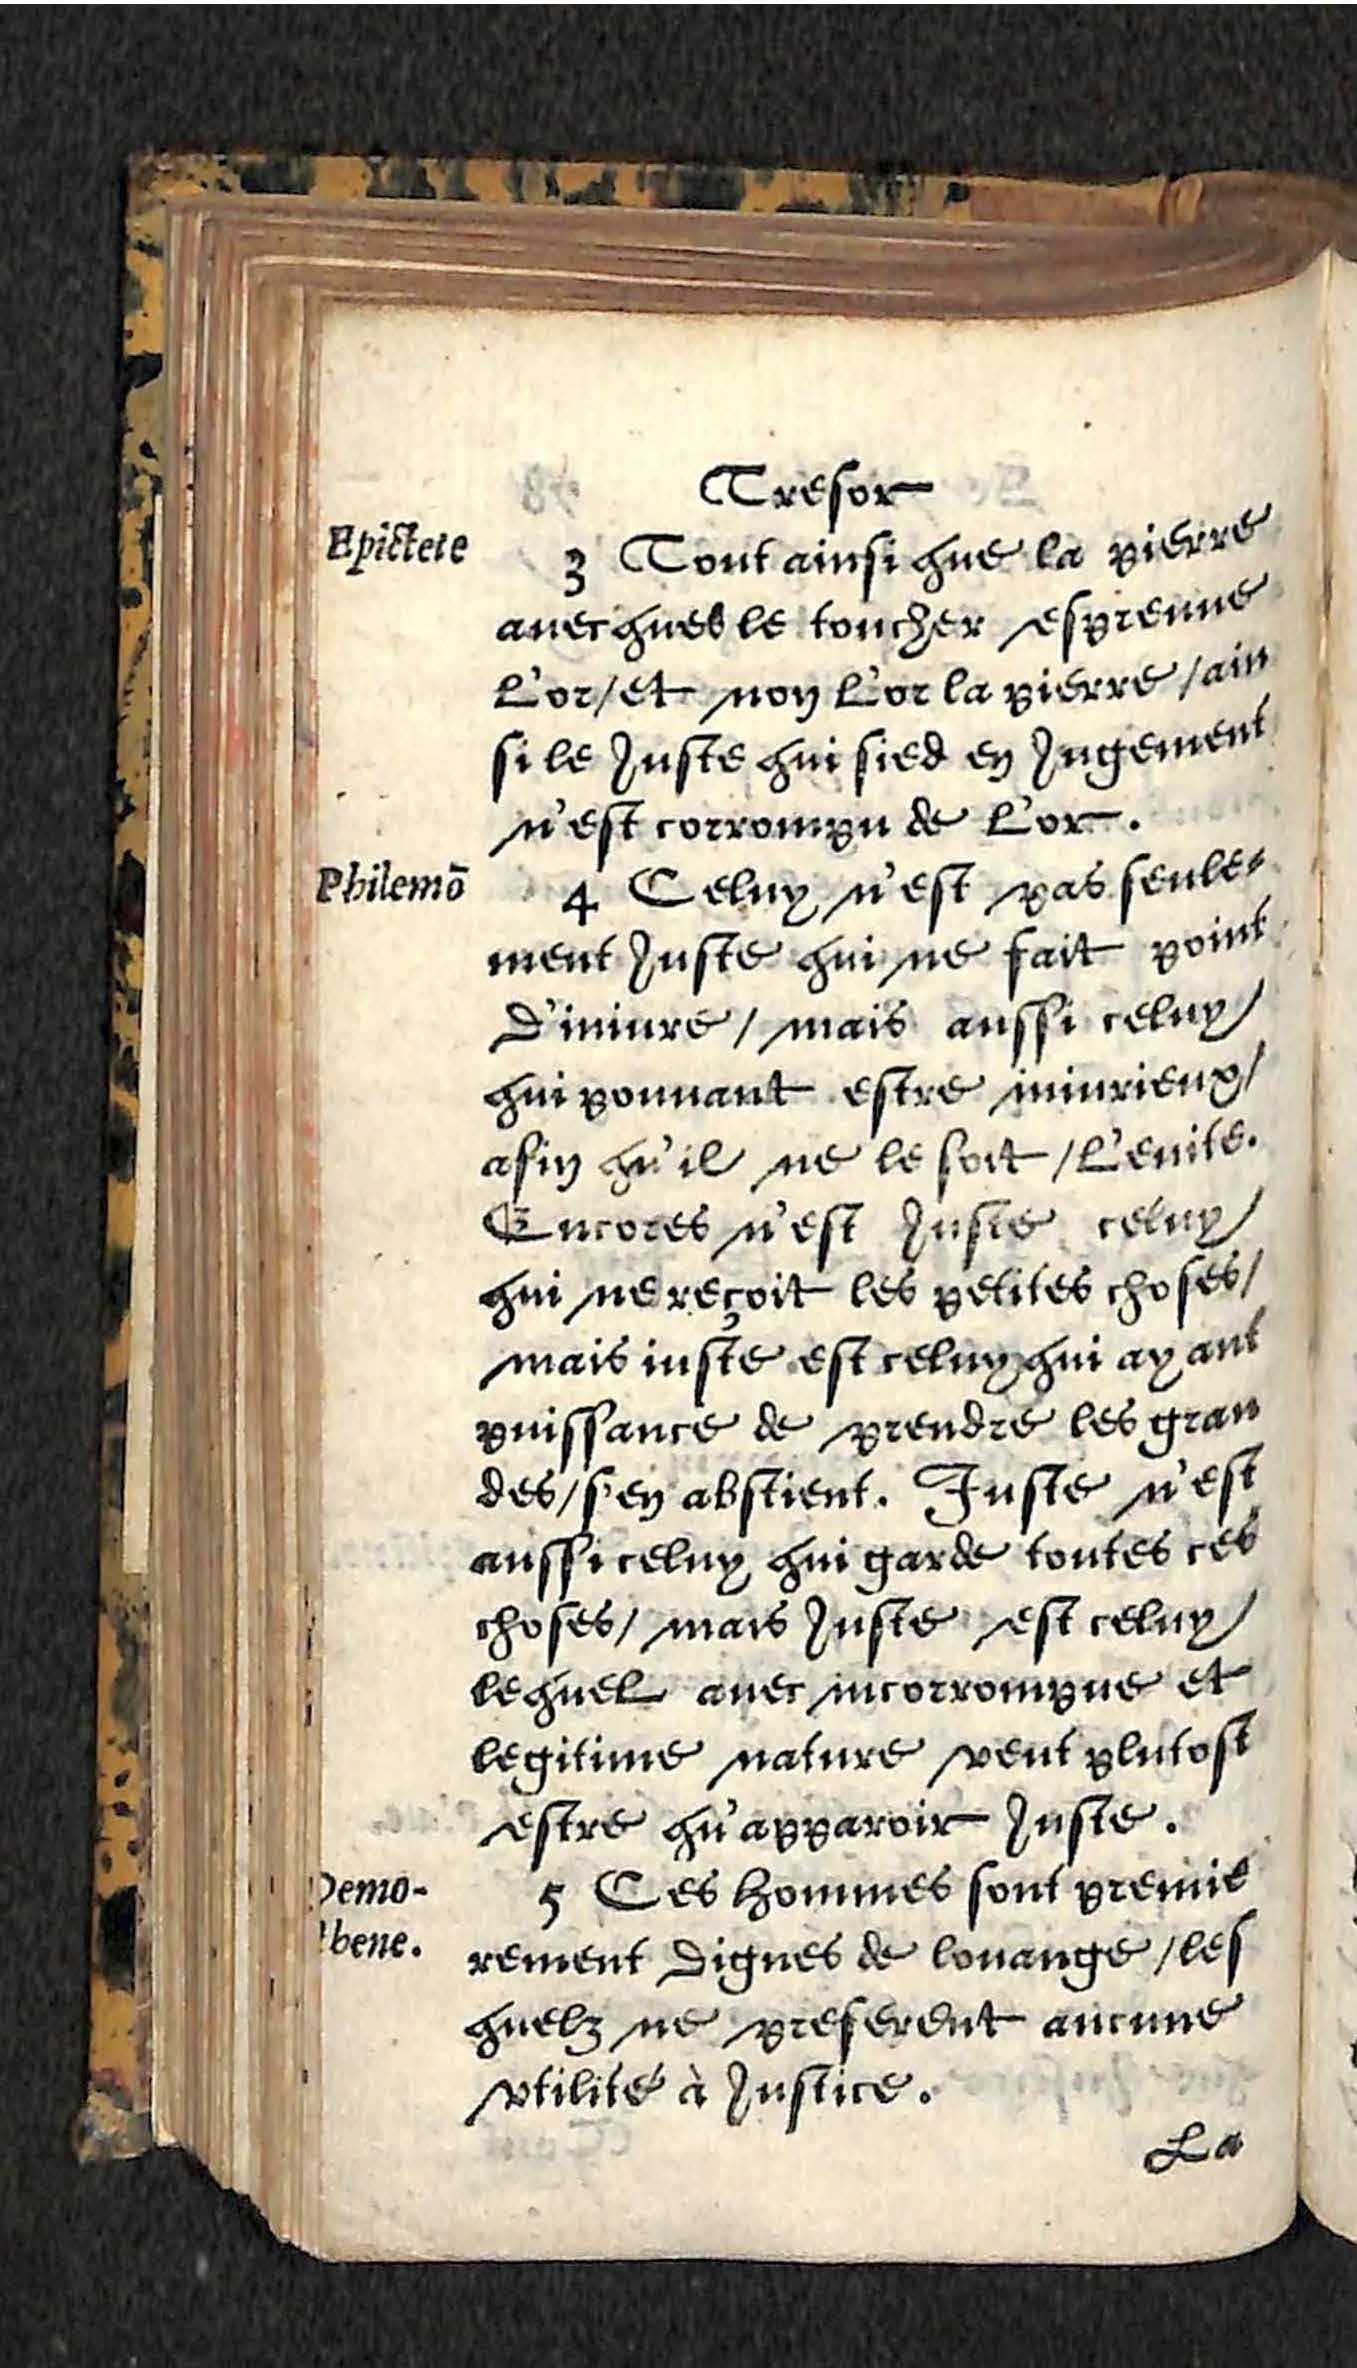 Tresor
Epictete
3 Tout ainsi que la pierre
auecques le toucher espreuue
l'or/et non l'or la pierre/ain
si le Juste qui sied en Jugement
n'est corrompu de l'or.
Philemō
4 Celuy n'est pas seule-
ment Juste qui ne fait point
d'iniure/ mais aussi celuy
qui pouuant estre iniurieux/
afin qu'il ne le soit/l'euite.
Encores n'est Juste celuy
qui ne reçoit les petites choses/
mais iuste est celuy qui ayant
puissance de prendre les gran
des/s'en abstient. Juste n'est
aussi celuy qui garde toutes ces
choses/ mais Juste est celuy
lequel auec incorrompue et
legitime nature veut plutost
estre qu'apparoir Juste.
Demo-
sthene.
5 Ces hommes sont premie
rement dignes de louange/les
quelz ne preferent aucune
vtilité à Justice.
La